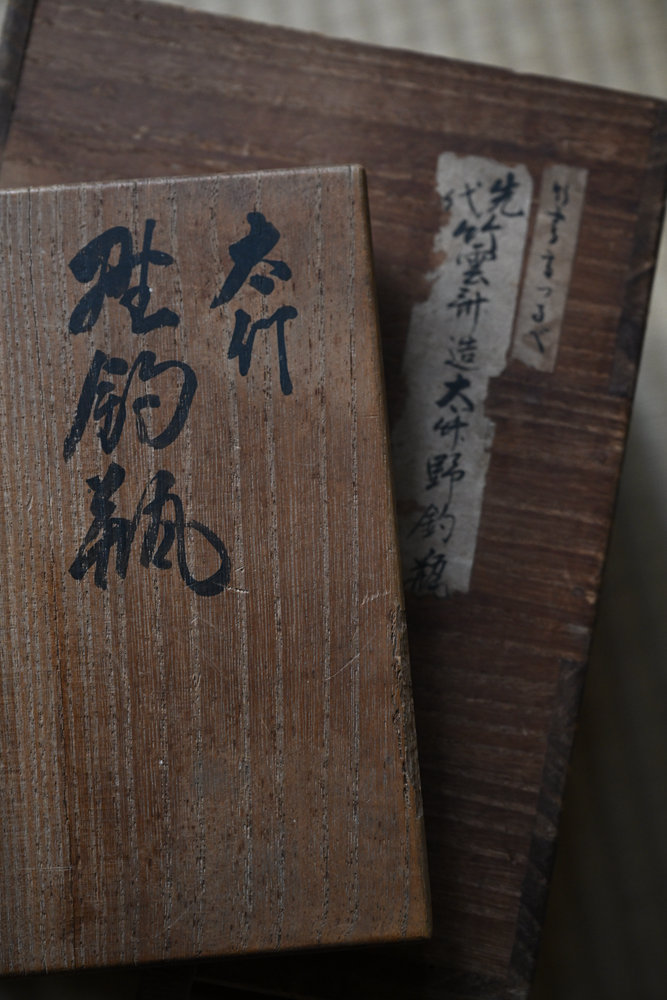 太竹
野釣瓶
先代竹雲斉造太竹野釣瓶